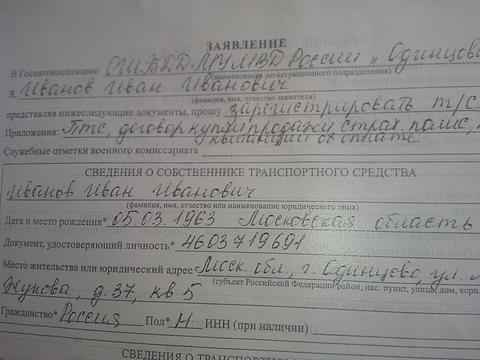 ЗАЯВЛЕНИЕ
В Госавтоинспекцию ОГИБДД МВД России "Одинцовс
(наименование регистрационного подразделения)
Я, Иванов Иван Иванович
(фамилия, имя, отчество заявителя)
представляя нижеследующие документы, прошу зарегистрировать т/с
Приложения: Птс, договор купли продажи, страх. полис,
квитанции об оплате
Служебные отметки военного комиссариата
СВЕДЕНИЯ О СОБСТВЕННИКЕ ТРАНСПОРТНОГО СРЕДСТВА
Иванов Иван Иванович
(фамилия, имя, отчество или наименование юридического лица)
Дата и место рождения* 05.03.1963 Московская область
Документ, удостоверяющий личность* 4603719691
Место жительства или юридический адрес Моск. обл., г. Одинцово, ул. М
(субъект Российской Федерации район, нас. пункт, улица, дом, корп.
Жукова, д. 37, кв 5
Гражданство* Россия Пол* М ИНН (при наличии)
СВЕДЕНИЯ О ТРАНСПОРТНО